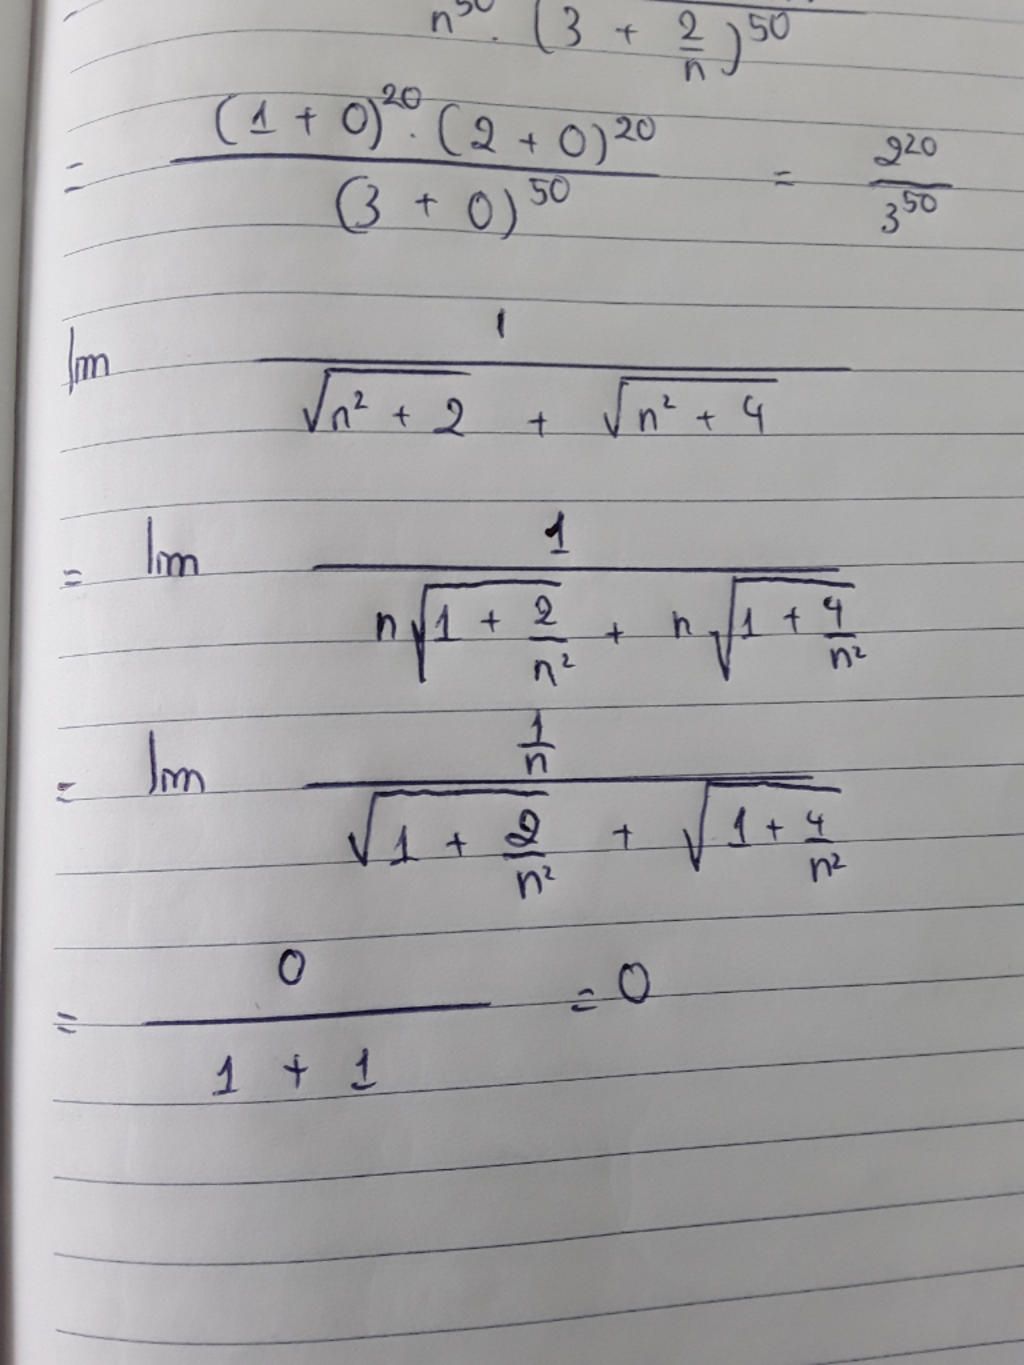 n^50 . (3 + 2/n)^50
= (1 + 0)^20 . (2 + 0)^20 / (3 + 0)^50 = 2^20 / 3^50
lim 1 / (√(n² + 2) + √(n² + 4))
= lim 1 / (n√(1 + 2/n²) + n√(1 + 4/n²))
= lim (1/n) / (√(1 + 2/n²) + √(1 + 4/n²))
= 0 / (1 + 1) = 0